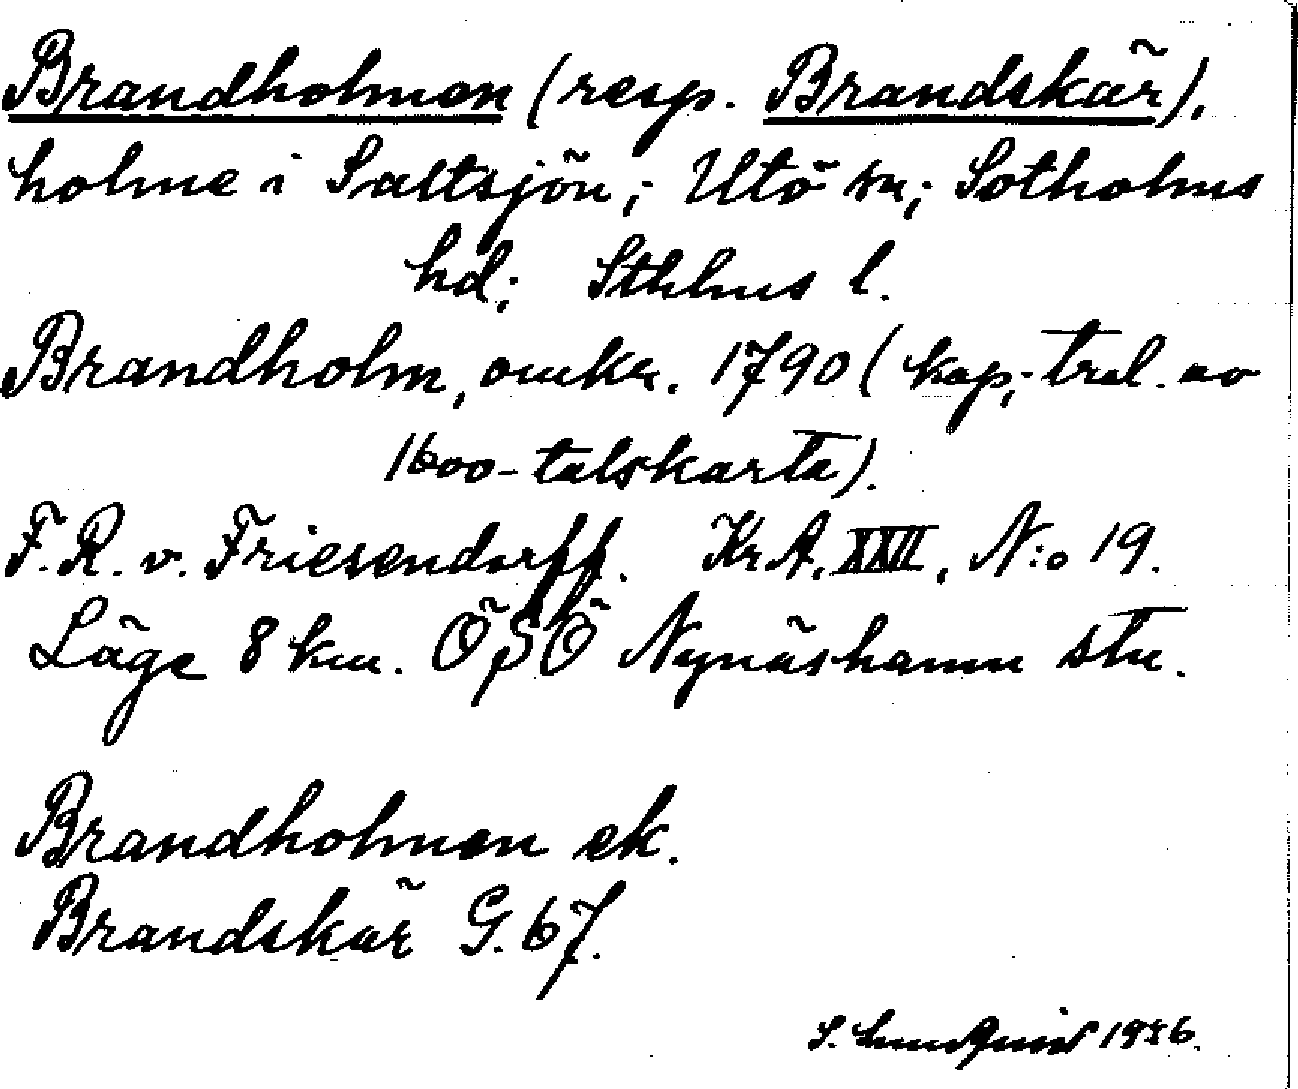 Brandholmen (resp. Brandskär),
holme i Saltsjön; Utö sn; Sotholms
hd; Sthlms l.
Brandholm, omkr. 1790 (kop; trol. av
1600-talskarta).
F. R. v. Friesendorff. KrA, XXII, N:o 19.
Läge 8 km. ÖSÖ Nynäshamn stn.
Brandholmen ek.
Brandskär G. 67.
1936.